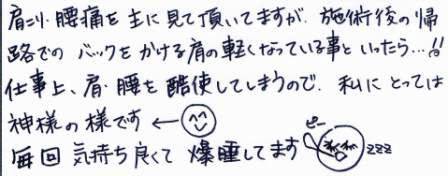 肩こり・腰痛を主に見て頂いてますが、施術後の帰
路でのバックをかける肩の軽くなっている事といったら…!!
仕事上、肩・腰を酷使してしまうので、私にとっては
神様の様です ←
毎回気持ち良くて爆睡してます ピー zzz